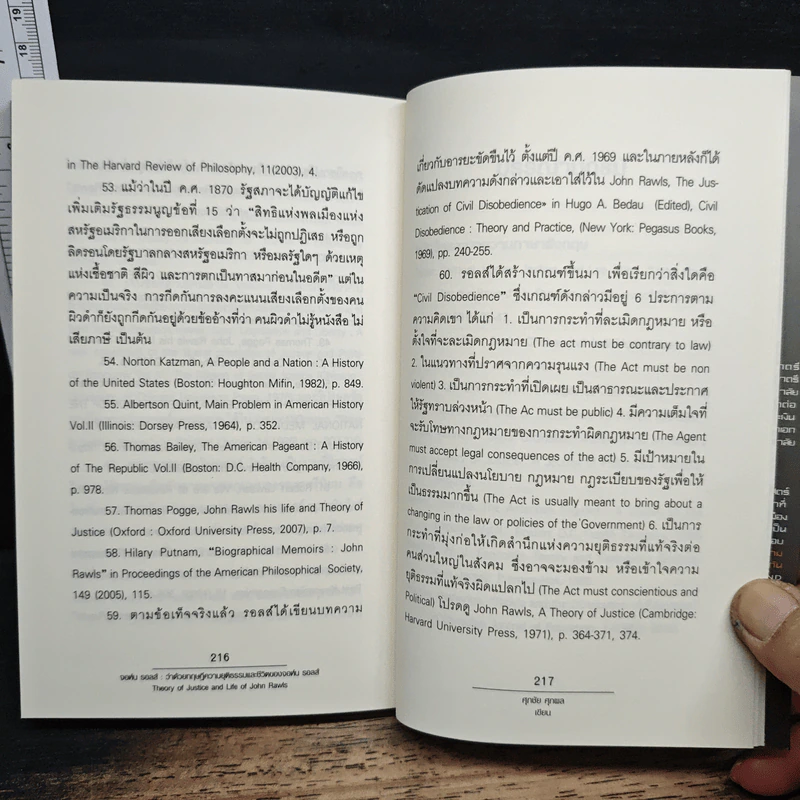 in The Harvard Review of Philosophy, 11(2003), 4.
53. แม้ว่าในปี ค.ศ. 1870 รัฐสภาจะได้บัญญัติแก้ไข
เพิ่มเติมรัฐธรรมนูญข้อที่ 15 ว่า “สิทธิแห่งพลเมืองแห่ง
สหรัฐอเมริกาในการออกเสียงเลือกตั้งจะไม่ถูกปฏิเสธ หรือถูก
ลิดรอนโดยรัฐบาลกลางสหรัฐอเมริกา หรือมลรัฐใดๆ ด้วยเหตุ
แห่งเชื้อชาติ สีผิว และการตกเป็นทาสมาก่อนในอดีต” แต่ใน
ความเป็นจริง การกีดกันการลงคะแนนเสียงเลือกตั้งของคน
ผิวดำก็ยังถูกกีดกันอยู่ด้วยข้ออ้างที่ว่า คนผิวดำไม่รู้หนังสือ ไม่
เสียภาษี เป็นต้น
54. Norton Katzman, A People and a Nation : A History
of the United States (Boston: Houghton Mifin, 1982), p. 849.
55. Albertson Quint, Main Problem in American History
Vol.II (Illinois: Dorsey Press, 1964), p. 352.
56. Thomas Bailey, The American Pageant : A History
of The Republic Vol.II (Boston: D.C. Health Company, 1966),
p. 978.
57. Thomas Pogge, John Rawls his life and Theory of
Justice (Oxford : Oxford University Press, 2007), p. 7.
58. Hilary Putnam, “Biographical Memoirs : John
Rawls” in Proceedings of the American Philosophical Society,
149 (2005), 115.
59. ตามข้อเท็จจริงแล้ว รอลส์ได้เขียนบทความ
216
จอห์น รอลส์ : ว่าด้วยทฤษฎีความยุติธรรมและชีวิตของจอห์น รอลส์
Theory of Justice and Life of John Rawls
เกี่ยวกับอารยะขัดขืนไว้ ตั้งแต่ปี ค.ศ. 1969 และในภายหลังก็ได้
ดัดแปลงบทความดังกล่าวและเอาใส่ไว้ใน John Rawls, The Jus-
tication of Civil Disobedience» in Hugo A. Bedau (Edited), Civil
Disobedience : Theory and Practice, (New York: Pegasus Books,
1969), pp. 240-255.
60. รอลส์ได้สร้างเกณฑ์ขึ้นมา เพื่อเรียกว่าสิ่งใดคือ
“Civil Disobedience” ซึ่งเกณฑ์ดังกล่าวมีอยู่ 6 ประการตาม
ความคิดเขา ได้แก่ 1. เป็นการกระทำที่ละเมิดกฎหมาย หรือ
ตั้งใจที่จะละเมิดกฎหมาย (The act must be contrary to law)
2. ในแนวทางที่ปราศจากความรุนแรง (The Act must be non
violent) 3. เป็นการกระทำที่เปิดเผย เป็นสาธารณะและประกาศ
ให้รัฐทราบล่วงหน้า (The Ac must be public) 4. มีความเต็มใจที่
จะรับโทษทางกฎหมายของการกระทำผิดกฎหมาย (The Agent
must accept legal consequences of the act) 5. มีเป้าหมายใน
การเปลี่ยนแปลงนโยบาย กฎหมาย กฎระเบียบของรัฐเพื่อให้
เป็นธรรมมากขึ้น (The Act is usually meant to bring about a
changing in the law or policies of the Government) 6. เป็นการ
กระทำที่มุ่งก่อให้เกิดสำนึกแห่งความยุติธรรมที่แท้จริงต่อ
คนส่วนใหญ่ในสังคม ซึ่งอาจจะมองข้าม หรือเข้าใจความ
ยุติธรรมที่แท้จริงผิดแปลกไป (The Act must conscientious and
Political) โปรดดู John Rawls, A Theory of Justice (Cambridge:
Harvard University Press, 1971), p. 364-371, 374.
217
ศุภชัย ศุภผล
เขียน
19
18